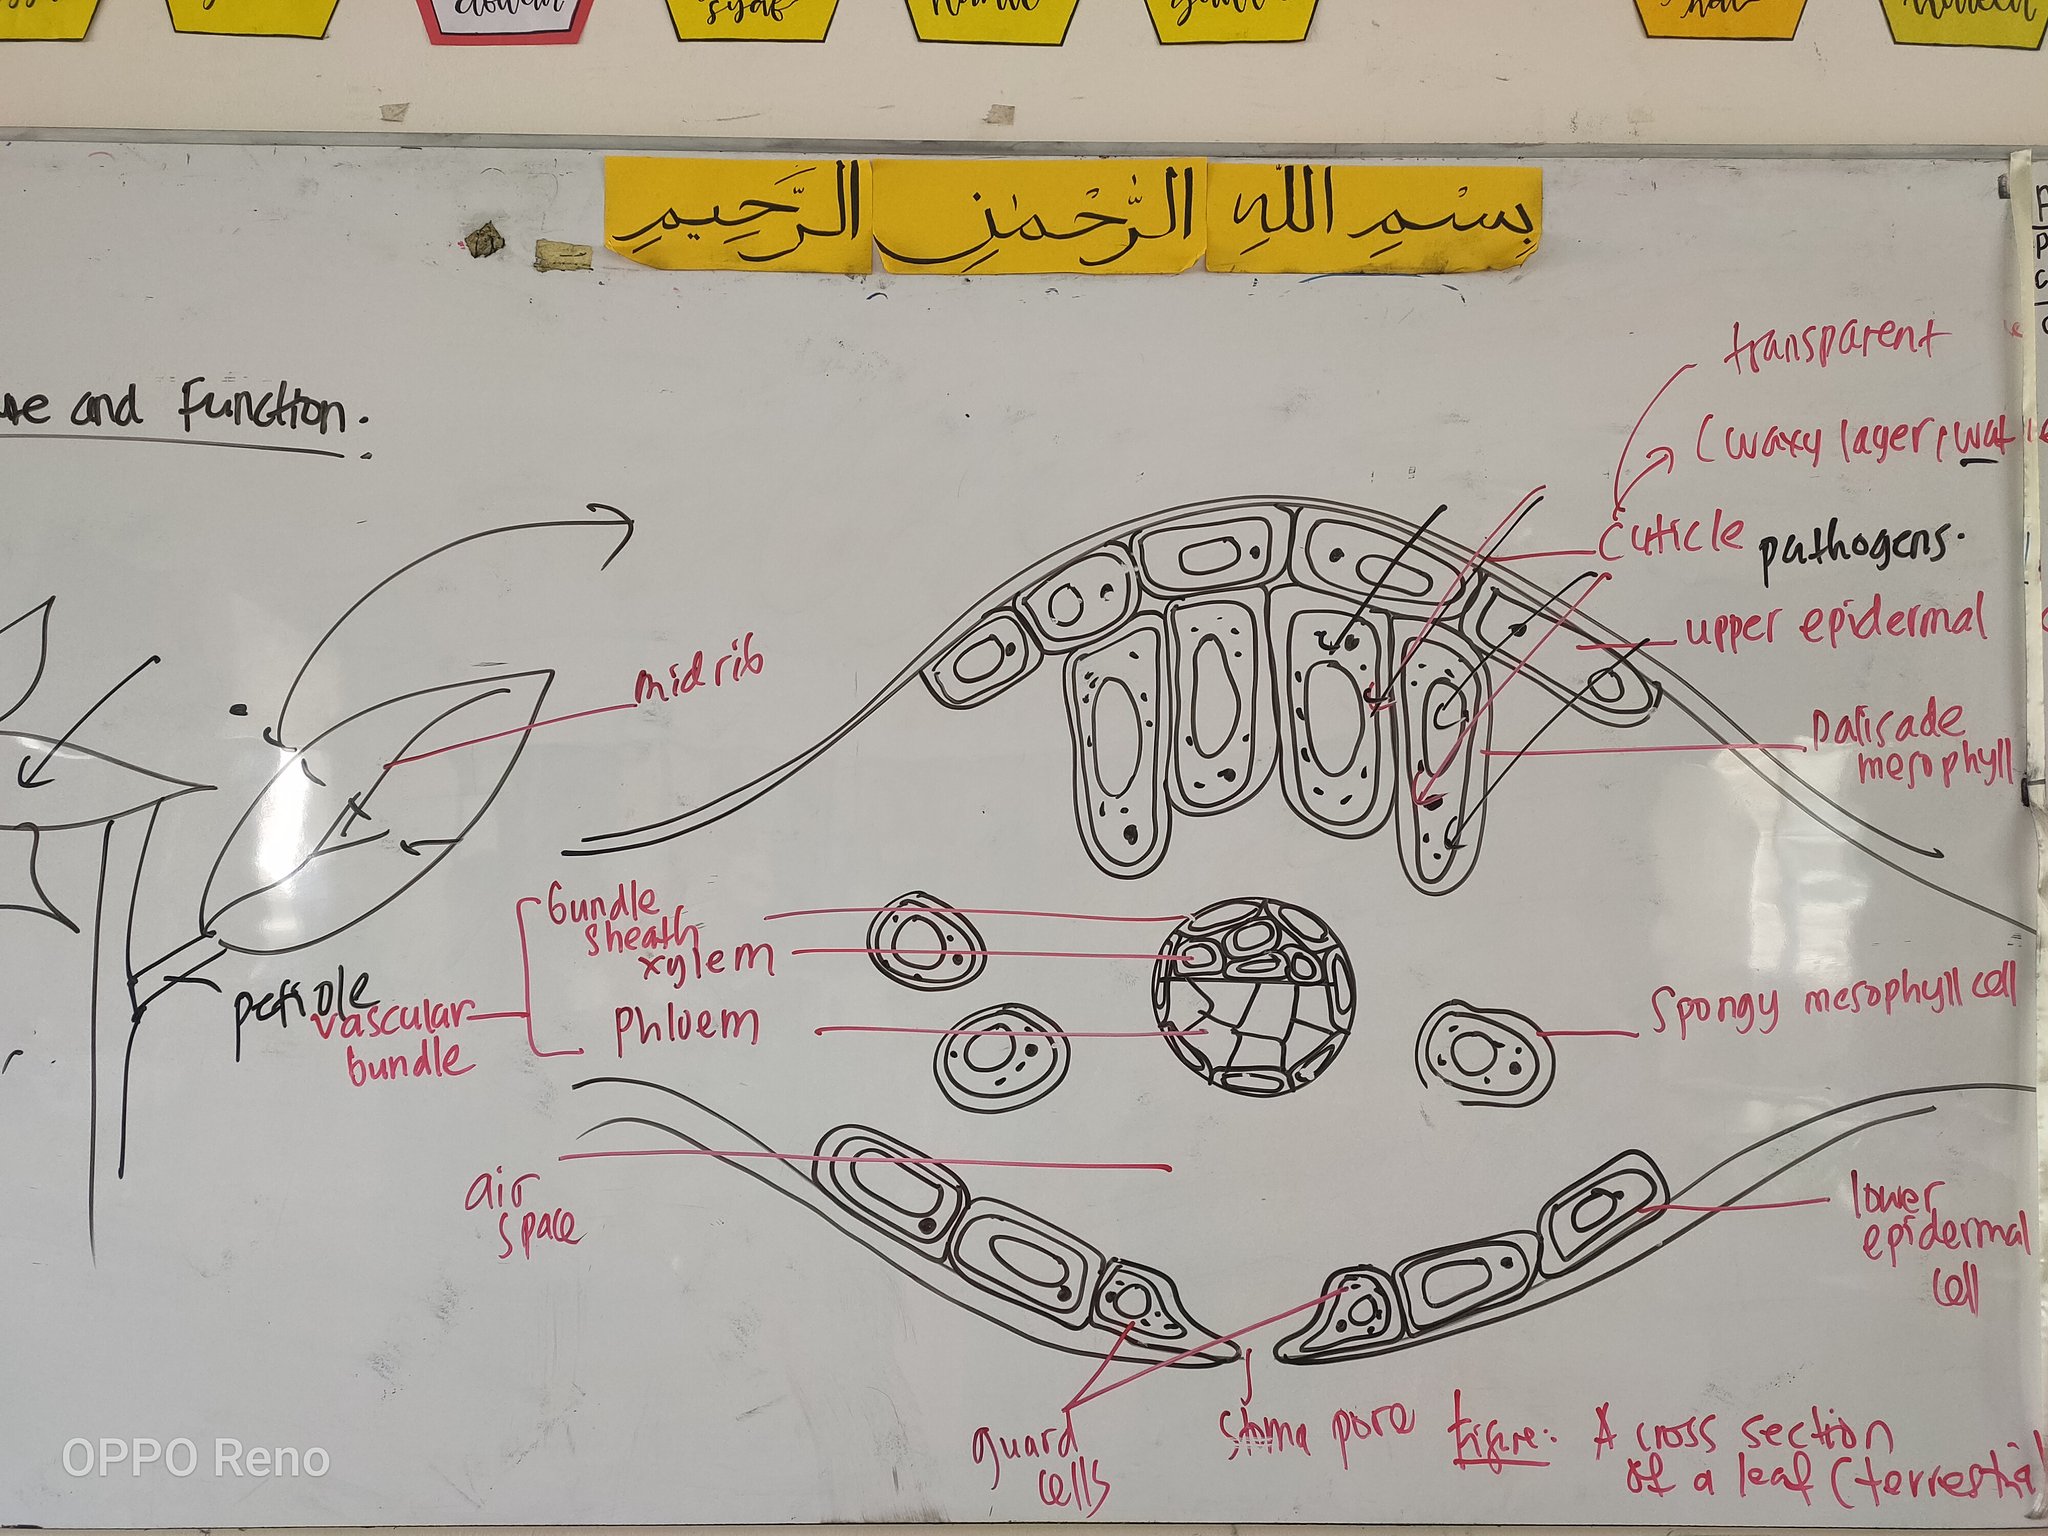 syaf
بِسْمِ اللهِ الرَّحْمٰنِ الرَّحِيمِ
and Function.
transparent
(waxy layer, wat
cuticle pathogens.
upper epidermal
midrib
palisade
mesophyll
bundle
sheath
xylem
phloem
petiole
vascular
bundle
spongy mesophyll cell
air
space
lower
epidermal
cell
guard
cells
stoma pore
figure: A cross section
of a leaf (terrestrial
OPPO Reno